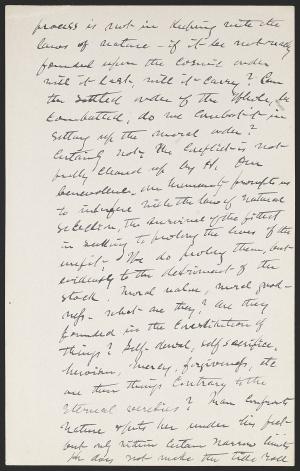 process is not in keeping with the
laws of nature – if it be not really
founded upon the cosmic order
will it last, will it carry? Can
the settled order of the whole, be
combatted, do we combat it in
setting up the moral order?
Certainly not. The conflict is not
fully cleared up by H. Our
benevolence, our humanity prompts us
to interfere with the law of natural
selection, the survival of the fittest
in seeking to prolong the lives of the
unfit. We do prolong them, but
evidently to the detriment of the
stock. Moral value, moral good-
ness – what are they? are they
founded in the constitution of
things? Self-denial, self sacrifice,
heroism, mercy, forgiveness, etc
are these things contrary to the
eternal verities? Man confronts
Nature & puts her under his feet
but only within certain narrow limits
He does not make the tide roll